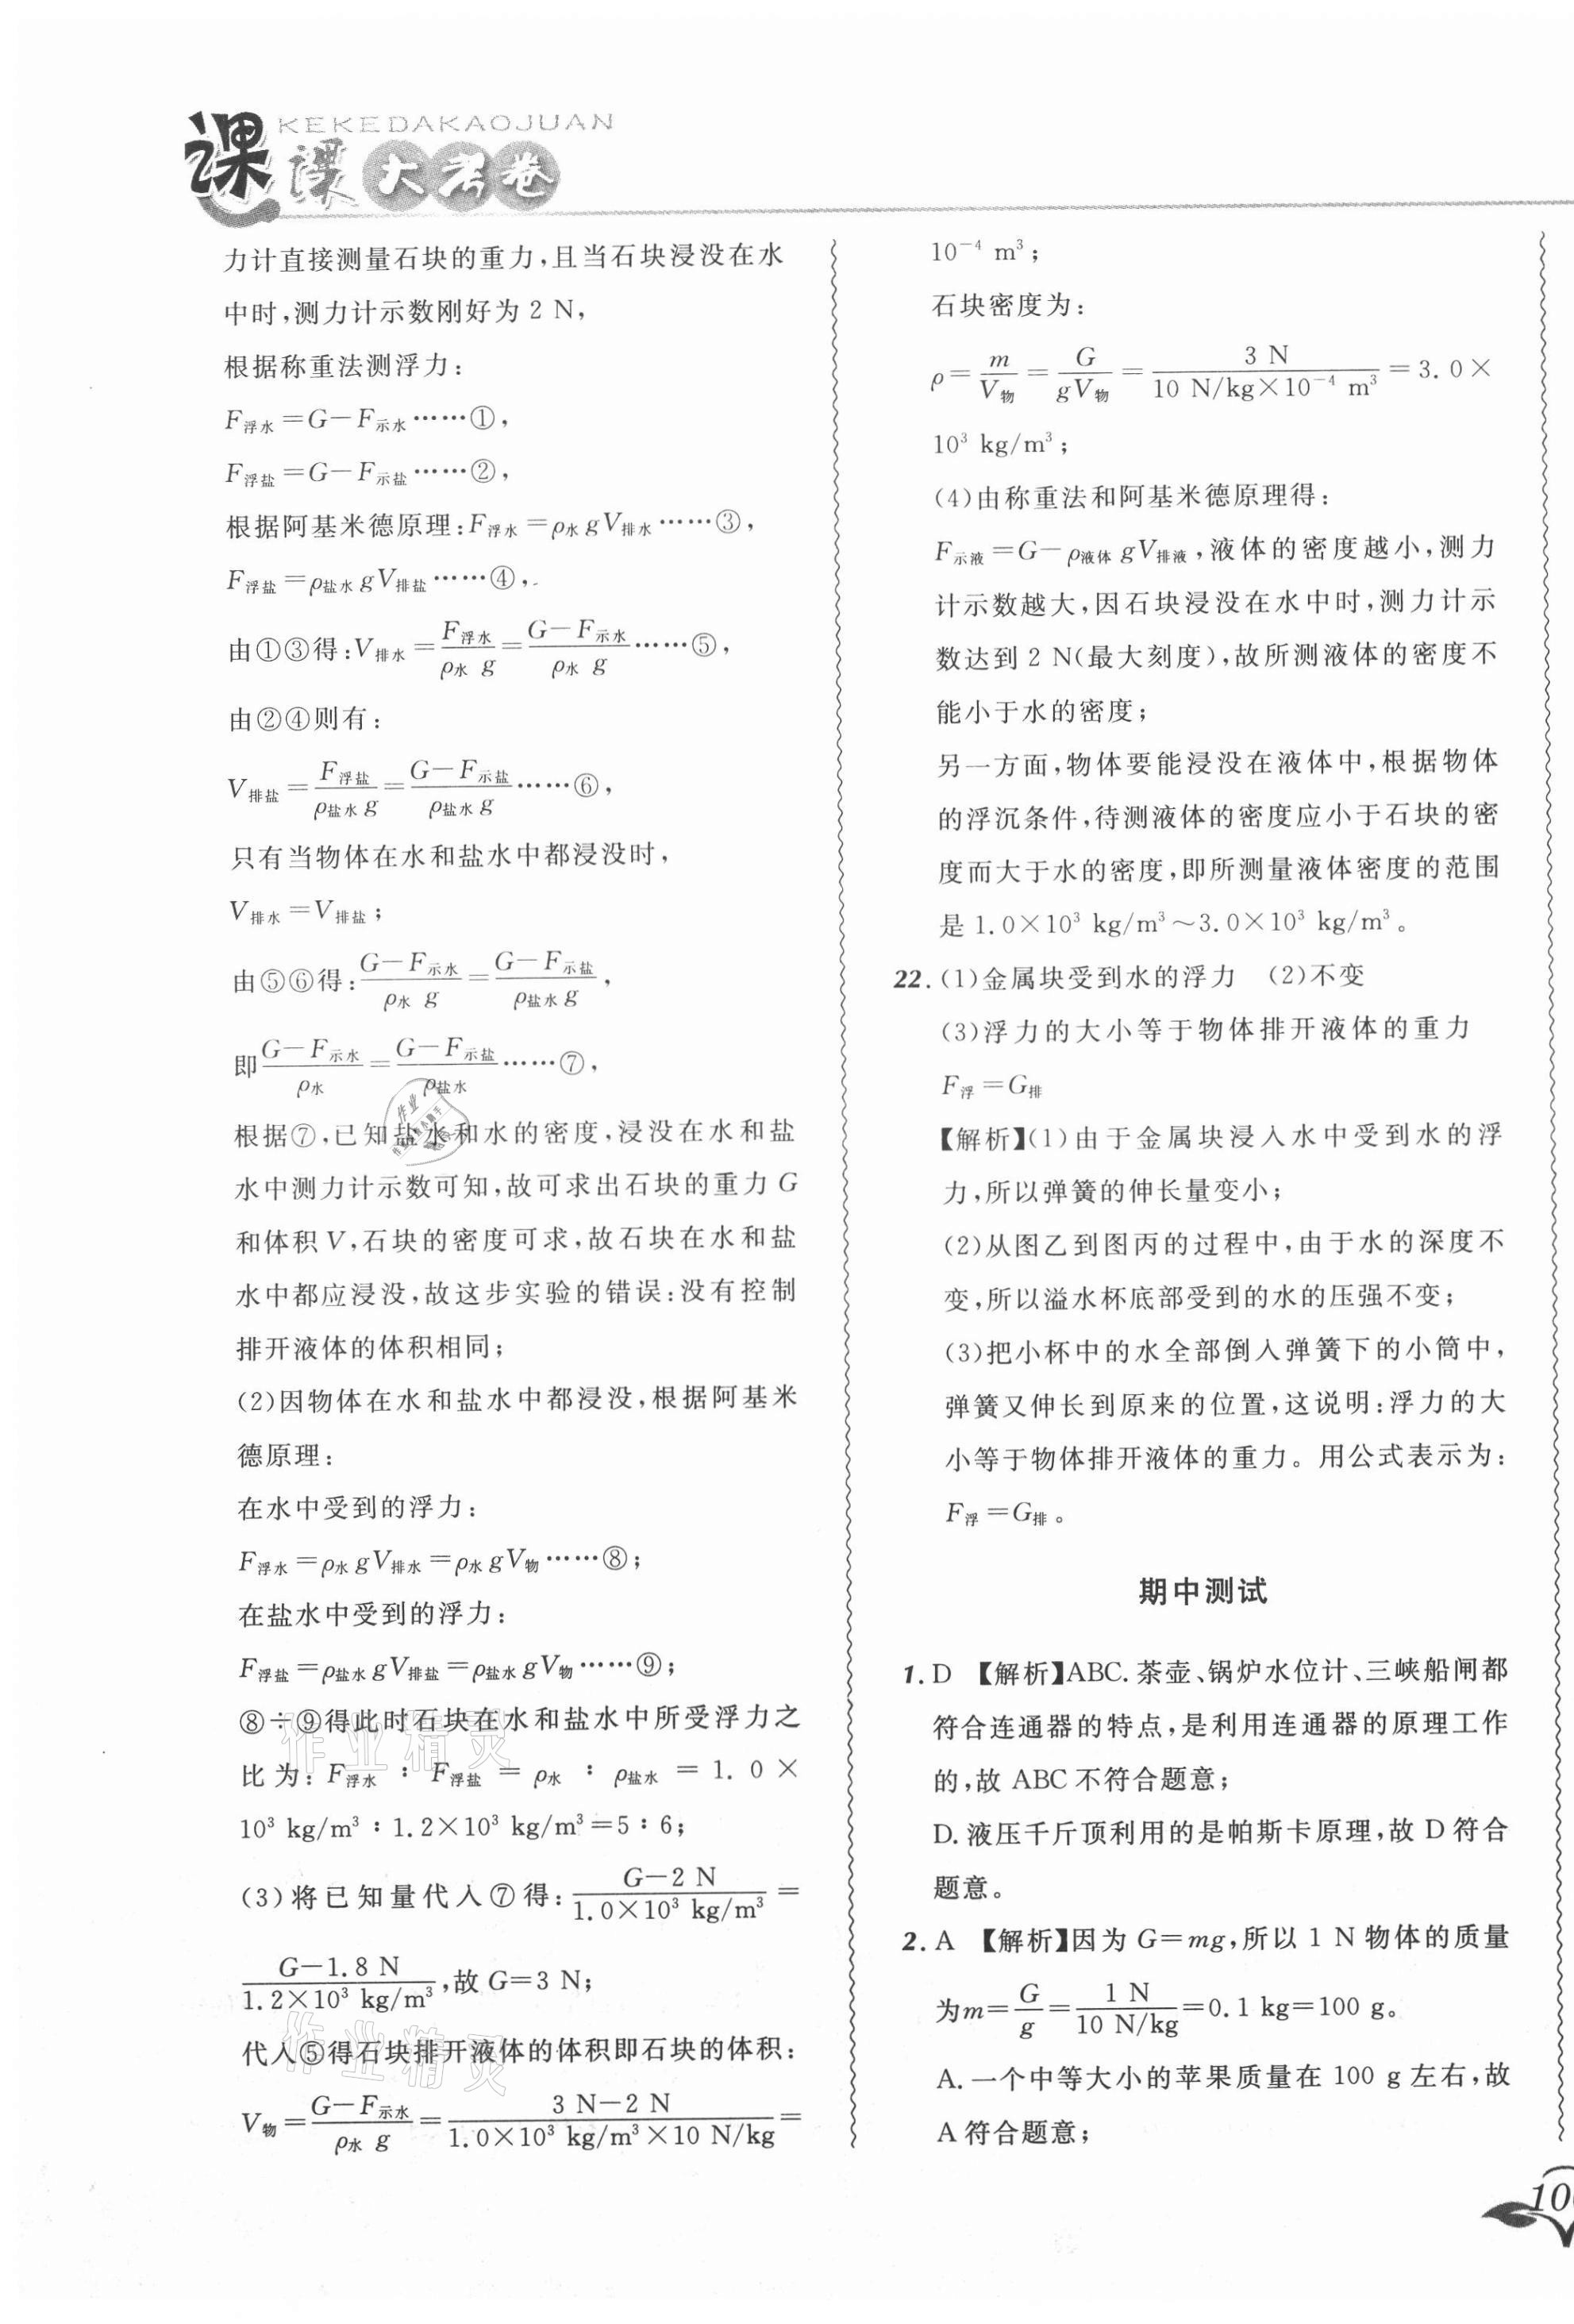 KEKEDAKAOJUAN
课课大考卷
力计直接测量石块的重力,且当石块浸没在水
中时,测力计示数刚好为 2 N,
根据称重法测浮力:
F浮水=G-F示水……①,
F浮盐=G-F示盐……②,
根据阿基米德原理:F浮水=ρ水gV排水……③,
F浮盐=ρ盐水gV排盐……④,
由①③得:V排水=F浮水/ρ水g=(G-F示水)/ρ水g……⑤,
由②④则有:
V排盐=F浮盐/ρ盐水g=(G-F示盐)/ρ盐水g……⑥,
只有当物体在水和盐水中都浸没时,
V排水=V排盐;
由⑤⑥得:(G-F示水)/ρ水g=(G-F示盐)/ρ盐水g,
即(G-F示水)/ρ水=(G-F示盐)/ρ盐水……⑦,
根据⑦,已知盐水和水的密度,浸没在水和盐
水中测力计示数可知,故可求出石块的重力 G
和体积 V,石块的密度可求,故石块在水和盐
水中都应浸没,故这步实验的错误:没有控制
排开液体的体积相同;
(2)因物体在水和盐水中都浸没,根据阿基米
德原理:
在水中受到的浮力:
F浮水=ρ水gV排水=ρ水gV物……⑧;
在盐水中受到的浮力:
F浮盐=ρ盐水gV排盐=ρ盐水gV物……⑨;
⑧÷⑨得此时石块在水和盐水中所受浮力之
比为:F浮水:F浮盐=ρ水:ρ盐水=1.0×
10³ kg/m³:1.2×10³ kg/m³=5:6;
(3)将已知量代入⑦得:(G-2 N)/(1.0×10³ kg/m³)=
(G-1.8 N)/(1.2×10³ kg/m³),故 G=3 N;
代入⑤得石块排开液体的体积即石块的体积:
V物=(G-F示水)/ρ水g=(3 N-2 N)/(1.0×10³ kg/m³×10 N/kg)=
10⁻⁴ m³;
石块密度为:
ρ=m/V物=G/gV物=3 N/(10 N/kg×10⁻⁴ m³)=3.0×
10³ kg/m³;
(4)由称重法和阿基米德原理得:
F示液=G-ρ液体gV排液,液体的密度越小,测力
计示数越大,因石块浸没在水中时,测力计示
数达到 2 N(最大刻度),故所测液体的密度不
能小于水的密度;
另一方面,物体要能浸没在液体中,根据物体
的浮沉条件,待测液体的密度应小于石块的密
度而大于水的密度,即所测量液体密度的范围
是 1.0×10³ kg/m³~3.0×10³ kg/m³。
22.(1)金属块受到水的浮力 (2)不变
(3)浮力的大小等于物体排开液体的重力
F浮=G排
【解析】(1)由于金属块浸入水中受到水的浮
力,所以弹簧的伸长量变小;
(2)从图乙到图丙的过程中,由于水的深度不
变,所以溢水杯底部受到的水的压强不变;
(3)把小杯中的水全部倒入弹簧下的小筒中,
弹簧又伸长到原来的位置,这说明:浮力的大
小等于物体排开液体的重力。用公式表示为:
F浮=G排。
期中测试
1.D 【解析】ABC.茶壶、锅炉水位计、三峡船闸都
符合连通器的特点,是利用连通器的原理工作
的,故 ABC 不符合题意;
D.液压千斤顶利用的是帕斯卡原理,故 D 符合
题意。
2.A 【解析】因为 G=mg,所以 1 N 物体的质量
为m=G/g=1 N/(10 N/kg)=0.1 kg=100 g。
A.一个中等大小的苹果质量在 100 g 左右,故
A 符合题意;
作业精灵
作业精灵